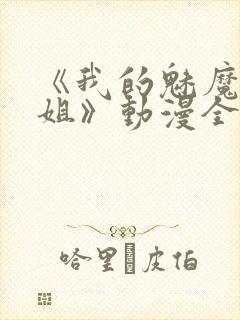 《我的魅魔
姐》動漫全
哈里皮伯